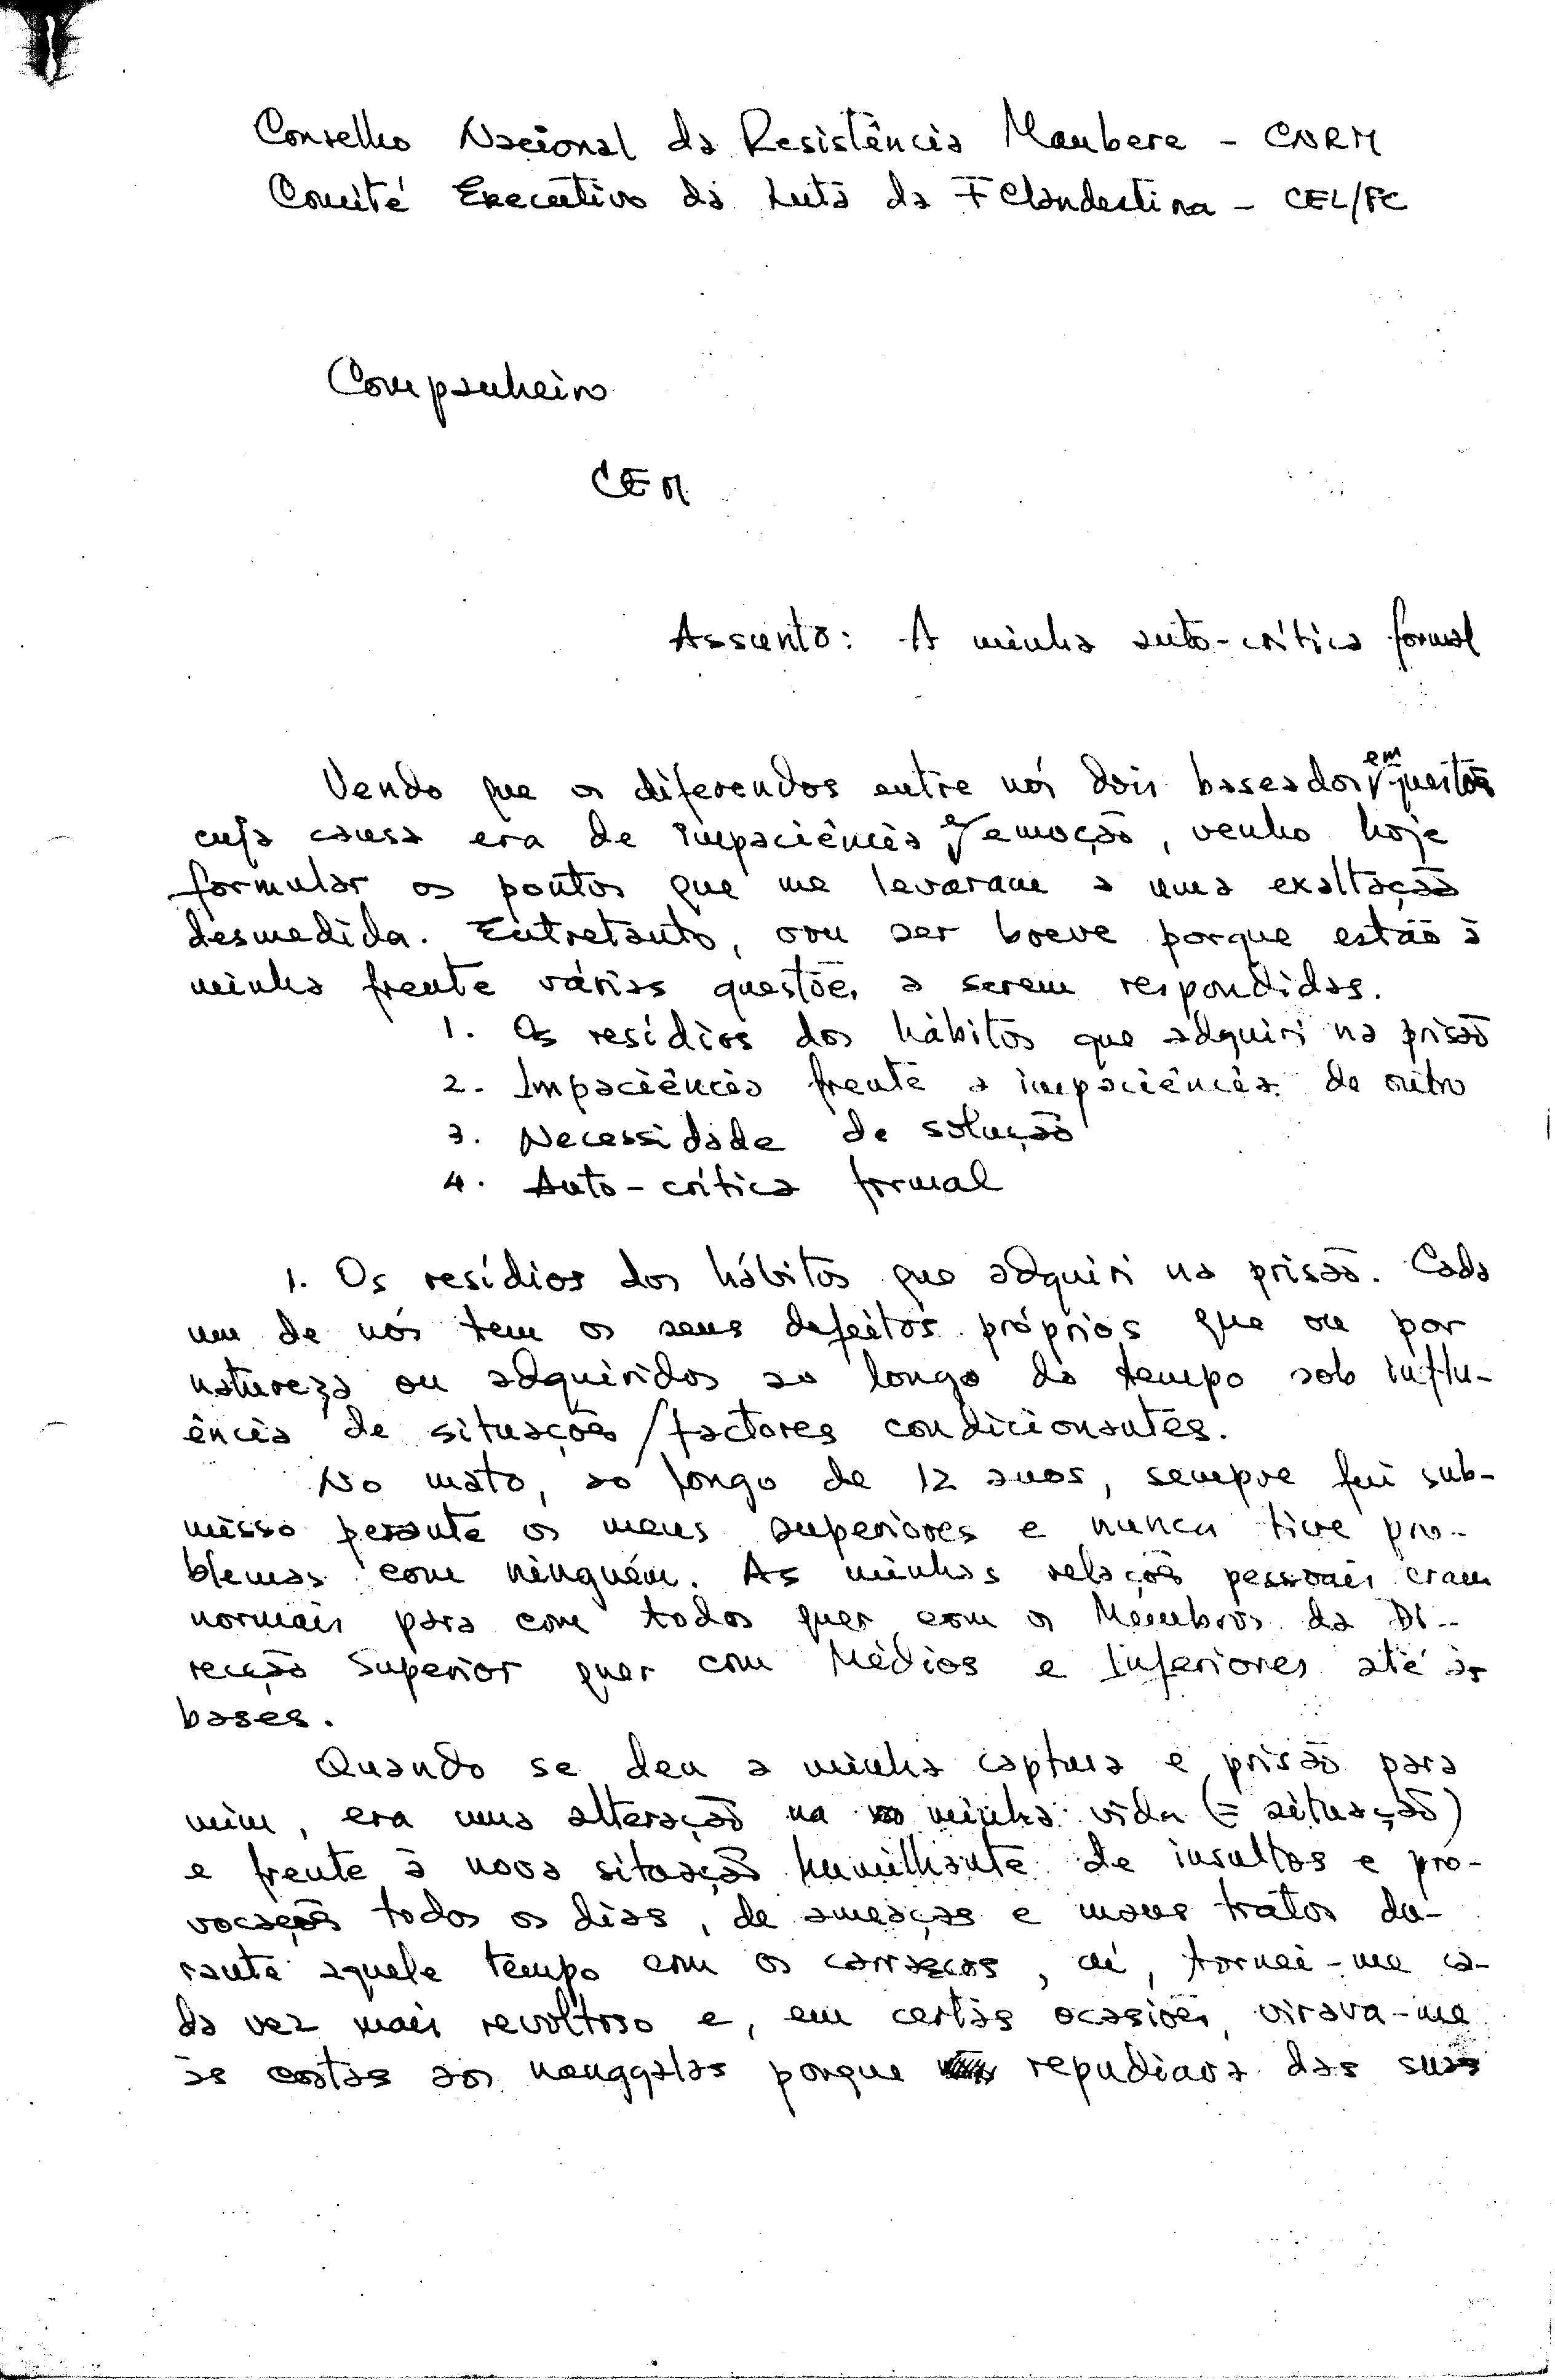 Conselho Nacional da Resistência Maubere - CNRM
Comité Executivo da Luta da F Clandestina - CEL/FC
Companheiro
CEM
Assunto: A minha auto-crítica formal
Vendo que os diferendos entre nós dois baseados em questões
cuja causa era de impaciência e emoção, venho hoje
formular os pontos que me levaram a uma exaltação
desmedida. Entretanto, vou ser breve porque estão à
minha frente várias questões a serem respondidas.
1. Os resídios dos hábitos que adquiri na prisão
2. Impaciência frente a impaciência de outro
3. Necessidade de solução
4. Auto-crítica formal
1. Os resídios dos hábitos que adquiri na prisão. Cada
um de nós tem os seus defeitos próprios que ou por
natureza ou adquiridos ao longo do tempo sob influ-
ência de situações/factores condicionantes.
No mato, ao longo de 12 anos, sempre fui sub-
misso perante os meus superiores e nunca tive pro-
blemas com ninguém. As minhas relações pessoais eram
normais para com todos quer com os Membros da Di-
recção Superior quer com Médios e Inferiores até às
bases.
Quando se deu a minha captura e prisão para
mim, era uma alteração na minha vida (= situação)
e frente à nova situação humilhante de insultos e pro-
vocações todos os dias, de ameaças e maus tratos du-
rante aquele tempo com os carrascos, aí, tornei-me ca-
da vez mais revoltoso e, em certas ocasiões, virava-me
as costas aos nanggalas porque repudiava das suas